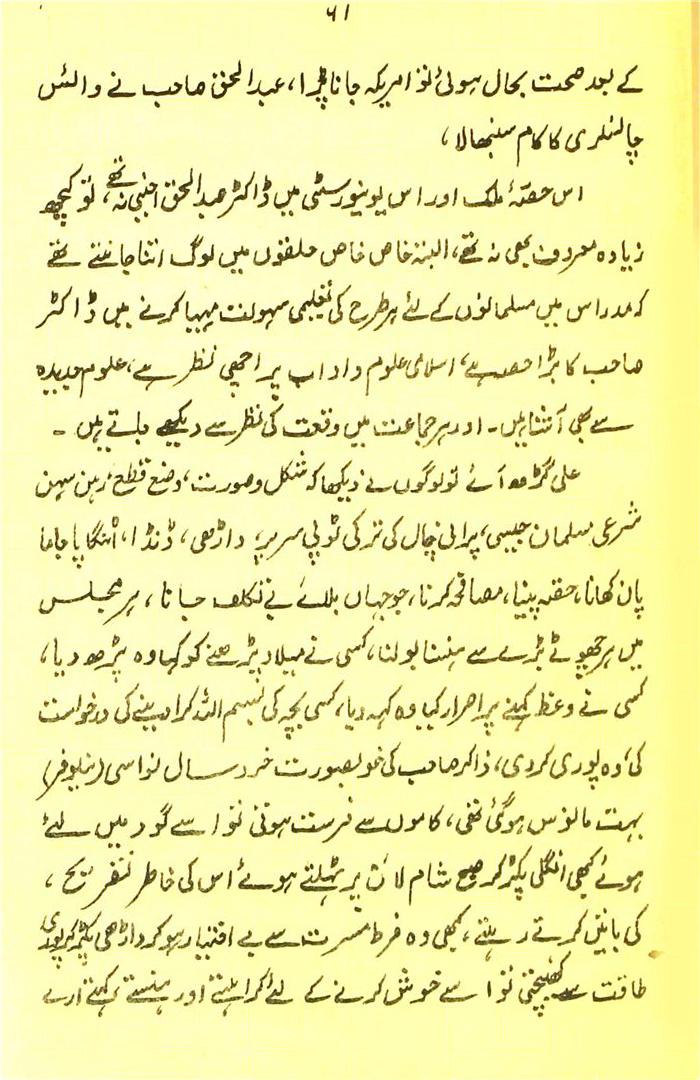 ۶۱
کے بعد صحت بحال ہوئی تو امریکہ جانا پڑا، عبدالحق صاحب نے وائس
چانسلری کا کام سنبھالا،
اس حصۂ ملک اور اس یونیورسٹی میں ڈاکٹر عبدالحق اجنبی نہ تھے، تو کچھ
زیادہ معروف بھی نہ تھے، البتہ خاص خاص حلقوں میں لوگ اتنا جانتے تھے
کہ مدراس میں مسلمانوں کے لئے ہر طرح کی تعلیمی سہولت مہیا کرنے میں ڈاکٹر
صاحب کا بڑا حصہ ہے، اسلامی علوم و اداب پر اچھی نظر ہے، علوم جدیدہ
سے بھی آشنا ہیں۔ اور ہر جماعت میں وقعت کی نظر سے دیکھے جاتے ہیں۔
علی گڑھ آئے تو لوگوں نے دیکھا کہ شکل و صورت، وضع قطع، رہن سہن
شرعی مسلمان جیسی، پرانی چال کی ترکی ٹوپی سر پر، داڑھی، ڈنڈا، اٹنگا پاجاما
پان کھانا، حقہ پینا، مصافحہ کرنا، جو جہاں بلائے بے تکلف جانا، ہر مجلس
میں ہر چھوٹے بڑے سے ہنسنا بولنا، کسی نے میلاد پڑھنے کو کہا وہ پڑھ دیا،
کسی نے وعظ کہنے پر اصرار کیا وہ کہہ دیا، کسی بچہ کی بسم اللہ کرا دینے کی درخواست
کی وہ پوری کر دی، ذاکر صاحب کی خوبصورت خرد سال نواسی (نیلوفر)
بہت مانوس ہو گئی تھی، کاموں سے فرصت ہوتی تو اسے گود میں لئے
ہوئے کبھی انگلی پکڑ کر صبح شام لان پر ٹہلتے ہوئے اس کی خاطر تفریح،
کی باتیں کرتے رہتے، کبھی وہ فرط مسرت سے بے اختیار ہو کر داڑھی پکڑ کر پوری
طاقت سے کھینچتی تو اسے خوش کرنے کے لئے کراہتے اور ہنستے کہتے ارے